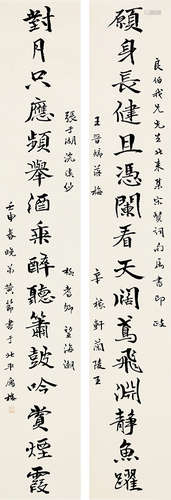 良伯我兄先生北來集宋賢詞句屬書印政
願身長健且憑闌看天闊鳶飛淵靜魚躍
王晉卿落梅 辛稼軒蘭陵王
張于湖浣溪沙 柳耆卿望海潮
對月只應頻舉酒乘醉聽簫鼓吟賞煙霞
壬申春晚弟黃節書于北平寓樓